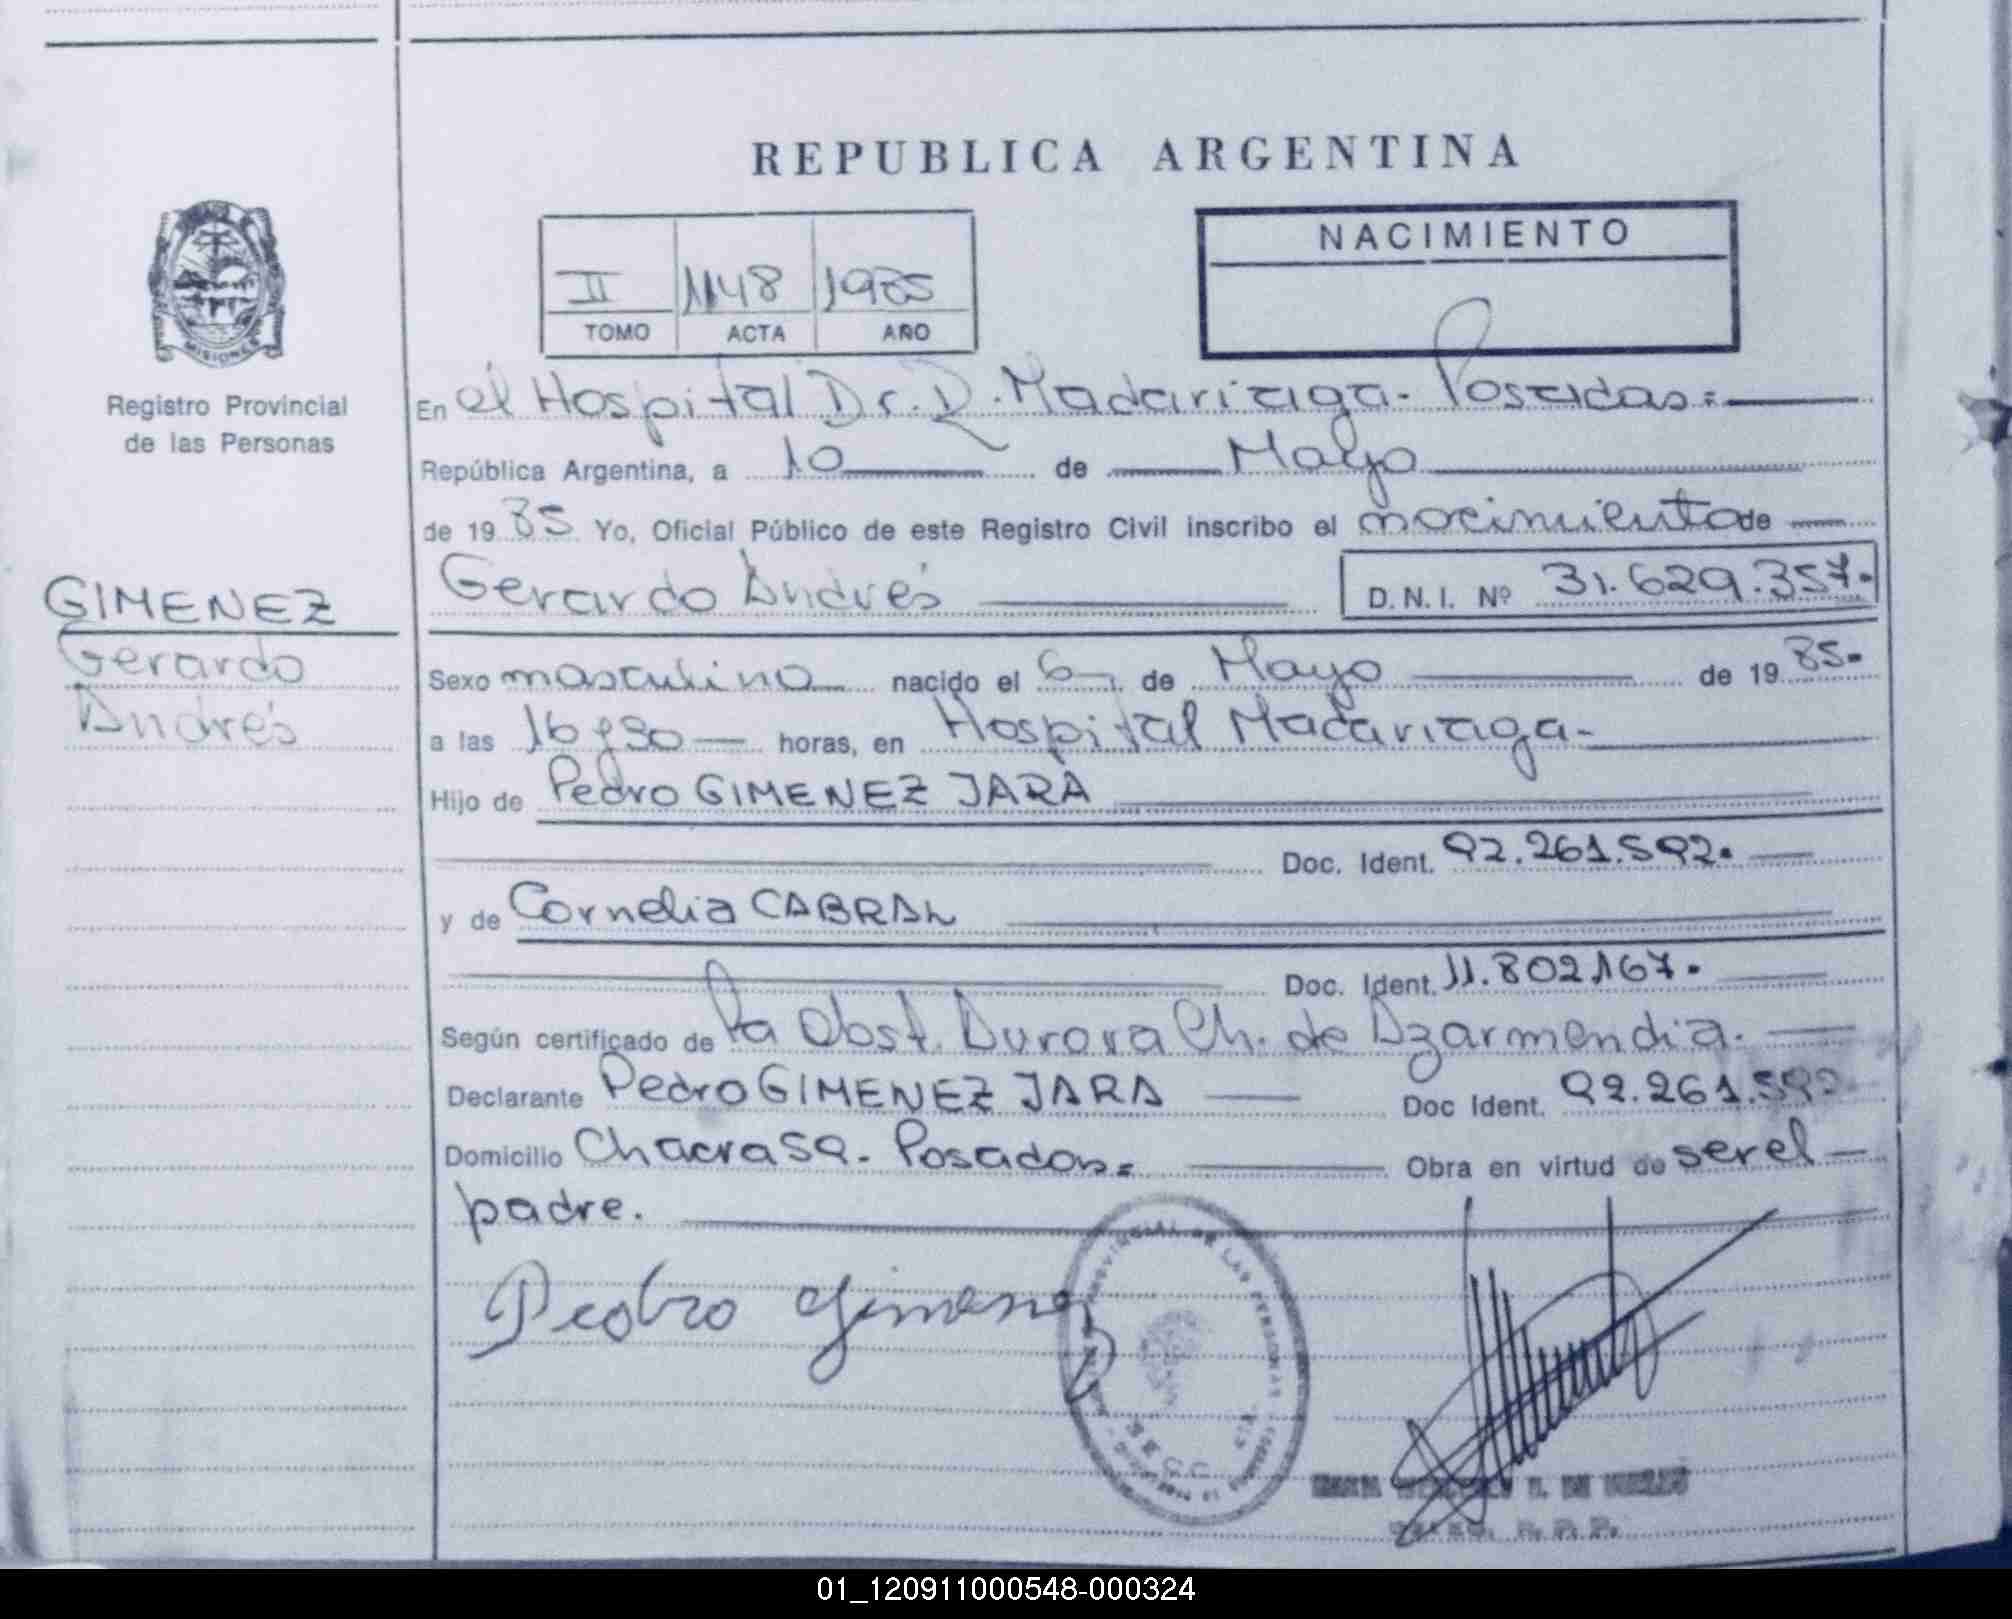 REPUBLICA ARGENTINA
NACIMIENTO
II 1148 1985
TOMO ACTA AÑO
MISIONES
Registro Provincial
de las Personas
En el Hospital Dr. R. Madariaga. Posadas.=
República Argentina, a 10 de Mayo
de 1985 Yo, Oficial Público de este Registro Civil inscribo el nacimiento de
GIMENEZ
Gerardo
Andrés
Gerardo Andrés D.N.I. Nº 31.629.357.
Sexo masculino nacido el 6 de Mayo de 1985.
a las 16 y 30 horas, en Hospital Madariaga-
Hijo de Pedro GIMENEZ JARA
Doc. Ident. 92.261.592.
y de Cornelia CABRAL
Doc. Ident. 11.802.167.
Según certificado de la Obst. Aurora Ch. de Azarmendia.
Declarante Pedro GIMENEZ JARA Doc Ident. 92.261.592
Domicilio Chacra 59. Posadas.= Obra en virtud de ser el
padre.
Pedro Gimenez
PROVINCIAL DE LAS PERSONAS
SECC
R. P. P.
01_120911000548-000324